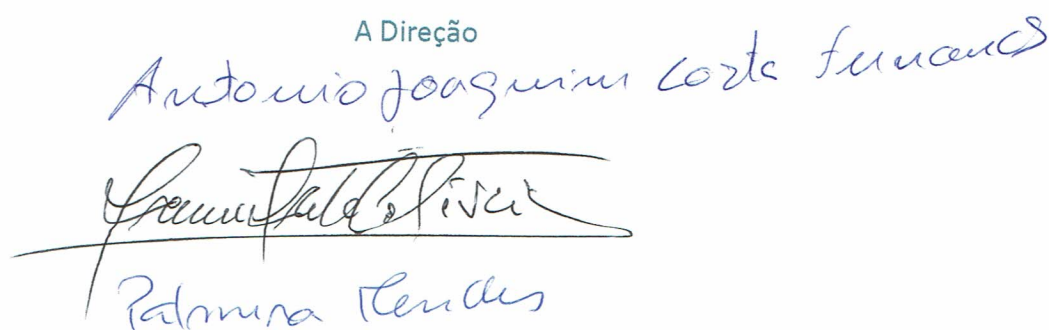 A Direção
Antonio Joaquim Costa Fernandes
Oliveira
Palmira Mendes